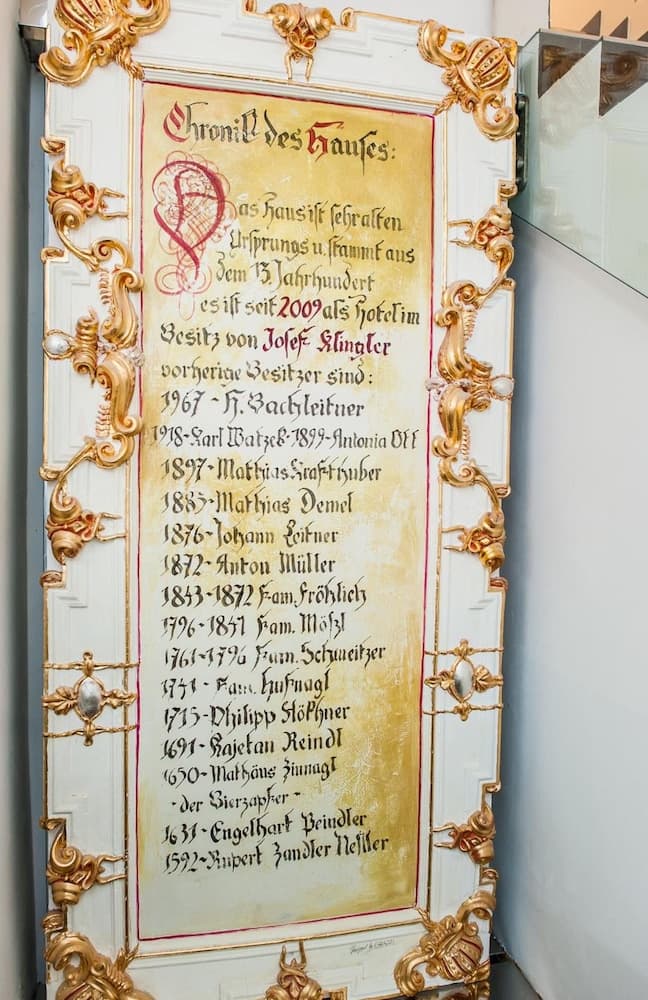 Chronik des Hauses:
Das Haus ist sehr alten
Ursprungs u. stammt aus
dem 13. Jahrhundert
es ist seit 2009 als Hotel im
Besitz von Josef Klingler
vorherige Besitzer sind:
1967 - H. Bachleitner
1918 - Karl Watzek - 1899 - Antonia Ott
1897 - Mathias Krafthuber
1885 - Mathias Demel
1876 - Johann Leitner
1872 - Anton Müller
1843 - 1872 Fam. Fröhlich
1796 - 1841 Fam. Mößl
1761 - 1796 Fam. Schweitzer
1741 - Fam. Hufnagl
1715 - Philipp Stökhner
1691 - Kajetan Reindl
1650 - Mathäus Zinnagl
- der Bierzapfer -
1631 - Engelhart Peindler
1592 - Rupert Zandler